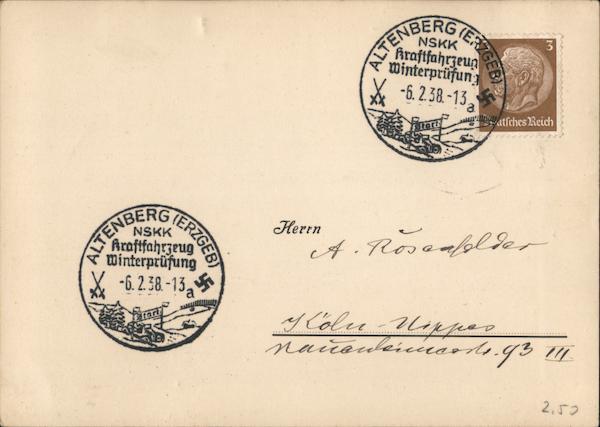 ALTENBERG (ERZGEB)
NSKK
Kraftfahrzeug
Winterprüfung
-6.2.38.-13
a
Start
3
Deutsches Reich
ALTENBERG (ERZGEB)
NSKK
Kraftfahrzeug
Winterprüfung
-6.2.38.-13
a
Start
Herrn
A. Rosenfelder
Köln-Nippes
93 III
2,50